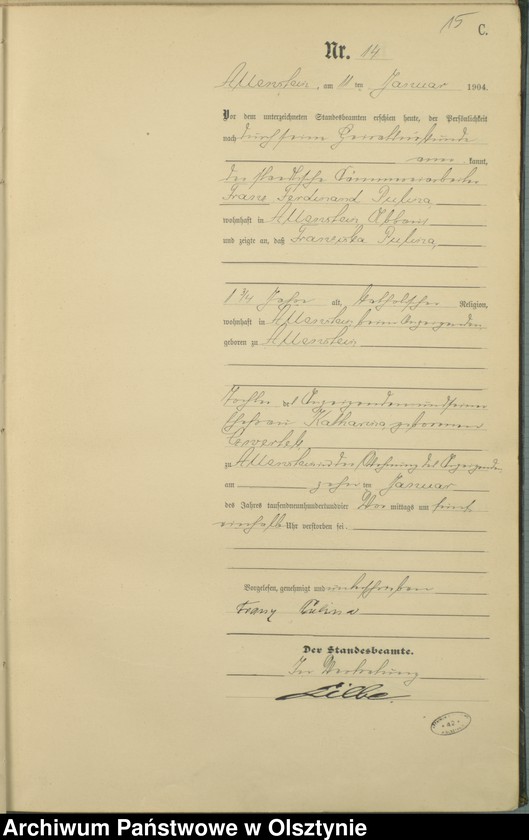 15
C.
Nr. 14
Allenstein, am 11 ten Januar 1904.
Vor dem unterzeichneten Standesbeamten erschien heute, der Persönlichkeit
nach durch seine Heiratsurkunde
anerkannt,
der städtische
Franz Ferdinand Pulina
wohnhaft in Allenstein Abbau
und zeigte an, daß Franziska Pulina,
1 3/4 Jahre alt, katholischer Religion,
wohnhaft in Allenstein beim Anzeigenden
geboren zu Allenstein
Tochter des Anzeigenden und seiner
Ehefrau Katharina geborenen
zu Allenstein in der Wohnung des Anzeigenden
am zehn ten Januar
des Jahres tausendneunhundertundvier Vor mittags um fünf
einhalb Uhr verstorben sei.
Vorgelesen, genehmigt und unterschrieben
Franz Pulina
Der Standesbeamte.
In Vertretung
Archiwum Państwowe w Olsztynie